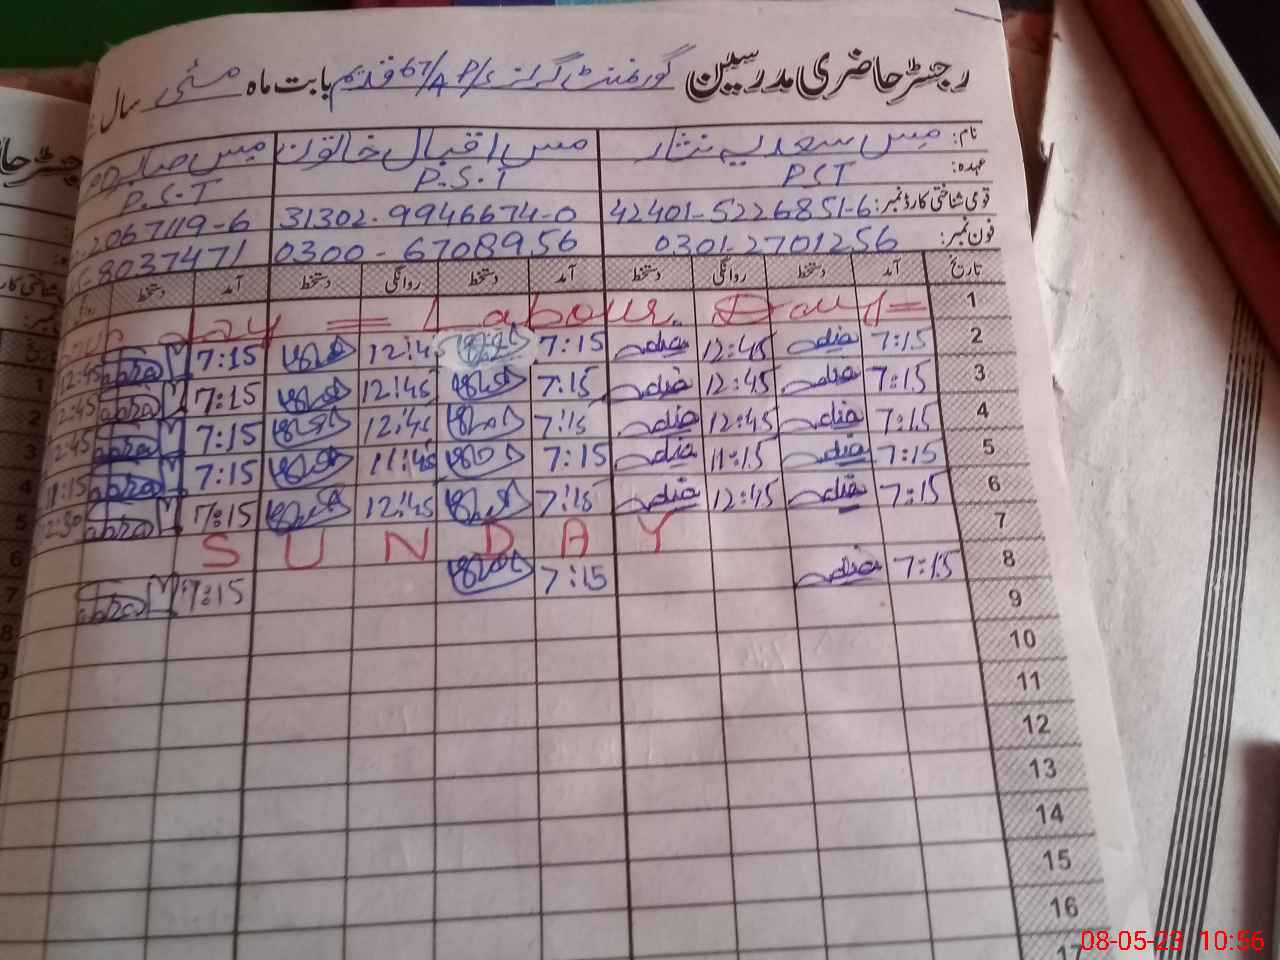 رجسٹر حاضری مدرسین گورنمنٹ گرلز P/S 67/A قدیم بابت ماہ مئی سال
نام: مس سعدیہ نثار مس اقبال خاتون مس
عہدہ: PST P.S.T P.S.T
قومی شناختی کارڈ نمبر: 42401-5226851-6 31302-9946674-0 2067119-6
فون نمبر: 0301-2701256 0300-6708956 8037471
تاریخ آمد دستخط روانگی دستخط آمد دستخط روانگی دستخط آمد دستخط
1 = Labour Day =
2 7:15 12:45 7:15 12:45 7:15 12:45
3 7:15 12:45 7:15 12:45 7:15 2:45
4 7:15 12:45 7:15 12:45 7:15 2:45
5 7:15 11:15 7:15 11:45 7:15 11:15
6 7:15 12:45 7:15 12:45 7:15 2:30
7 SUNDAY
8 7:15 7:15 7:15
9
10
11
12
13
14
15
16
17
08-05-23 10:56